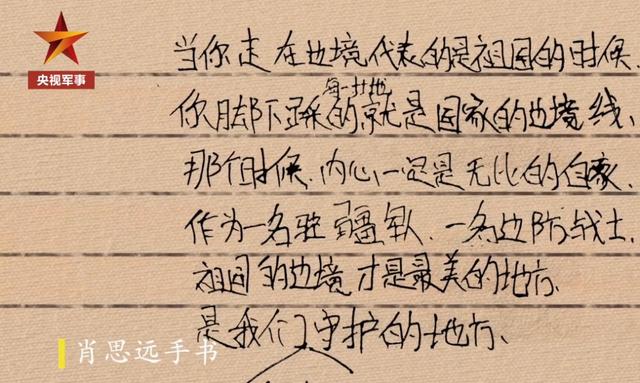 央视军事
当你走在边境代表的是祖国的时候,
每一寸地
你脚下踩的就是国家的边境线,
那个时候,内心一定是无比的自豪,
作为一名驻疆军人,一名边防战士,
祖国的边境才是最美的地方,
是我们守护的地方.
肖思远手书